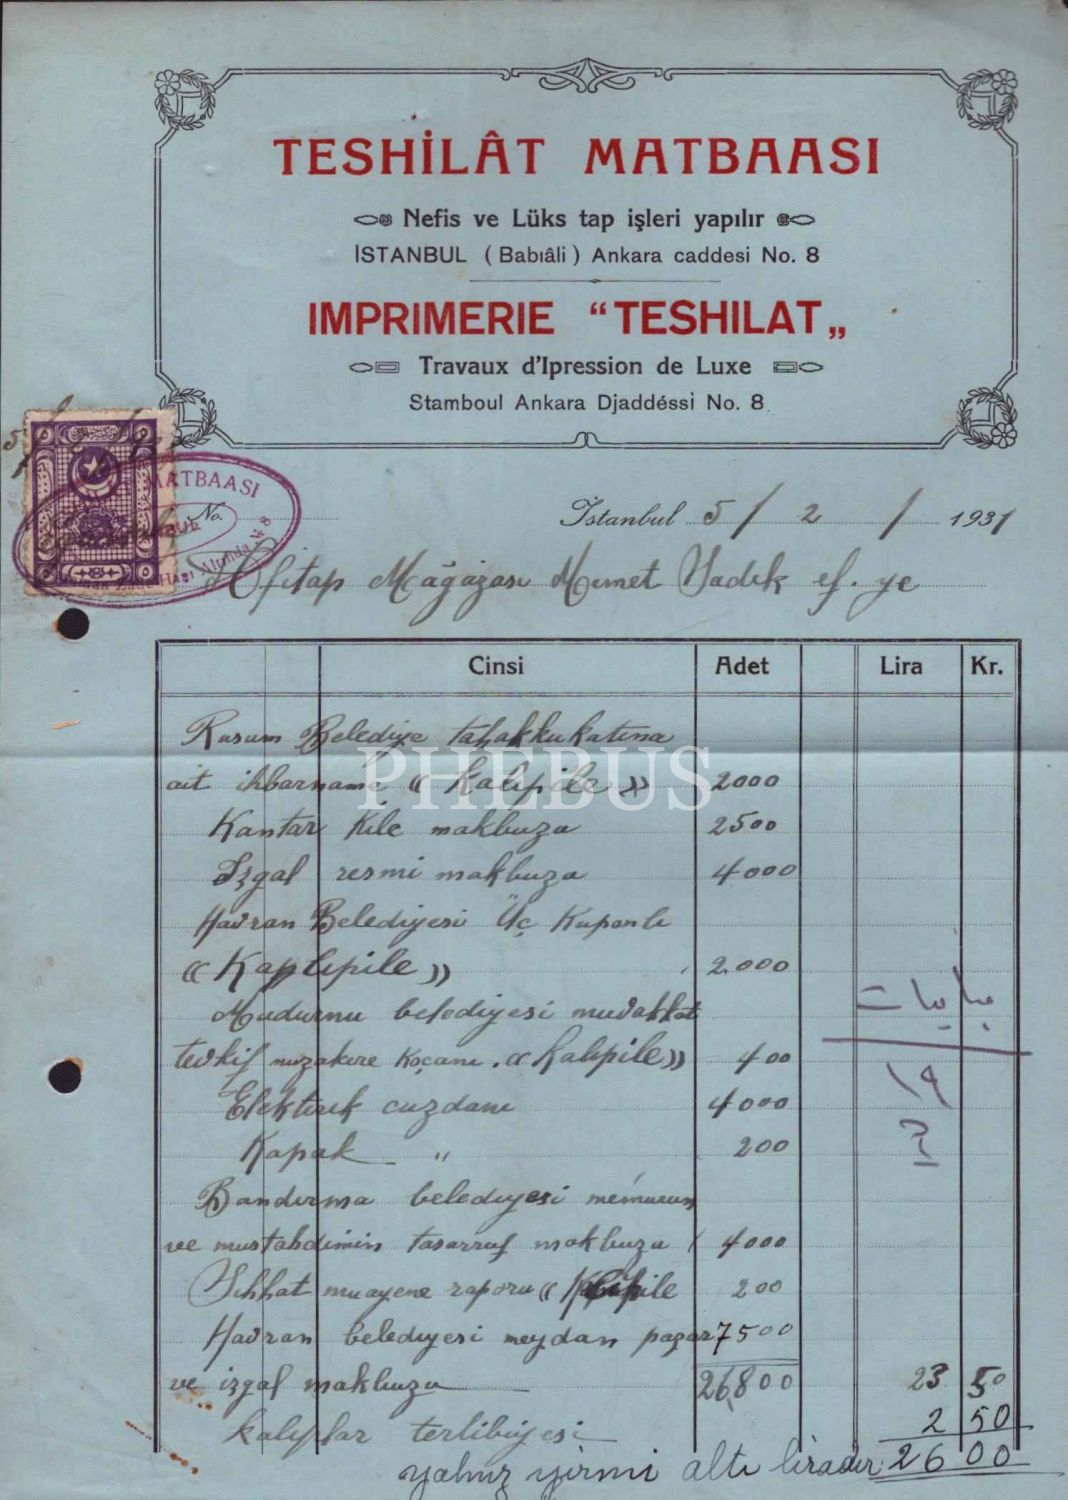 TESHİLÂT MATBAASI
Nefis ve Lüks tap işleri yapılır
İSTANBUL (Babıâli) Ankara caddesi No. 8
IMPRIMERIE “TESHILAT„
Travaux d'Ipression de Luxe
Stamboul Ankara Djaddéssi No. 8
MATBAASI
Altında № 8
No.
İstanbul 5 / 2 / 1931
Mağazası Memet Sadık ef. ye
Cinsi Adet Lira Kr.
Rusum Belediye tahakkukatına
ait ihbarname « Kalıpile » 2000
Kantar Kile makbuzu 2500
İzgal resmi makbuzu 4000
Havran Belediyesi Üç Kuponlu
« Kaplıpile » 2.000
Mudurnu belediyesi muvakkat
tevkif muzakere Koçanı. « Kalıpile » 400
Elektirik cuzdanı 4000
Kapak " 200
Bandırma belediyesi memurun
ve mustahdimin tasarruf makbuzu 4000
Sıhhat muayene raporu « Kalıpile 200
Havran belediyesi meydan pazar 7500
ve izgal makbuzu 26,800 23 50
Kalıplar tertibiyesi 2 50
yalnız yirmi altı liradır 26 00
PHEBUS